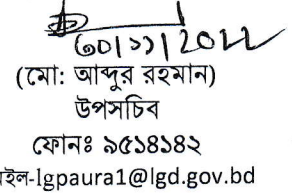 ৩০/১১/2০২২
(মো: আব্দুর রহমান)
উপসচিব
ফোনঃ ৯৫১৪১৪২
ইল-lgpaura1@lgd.gov.bd